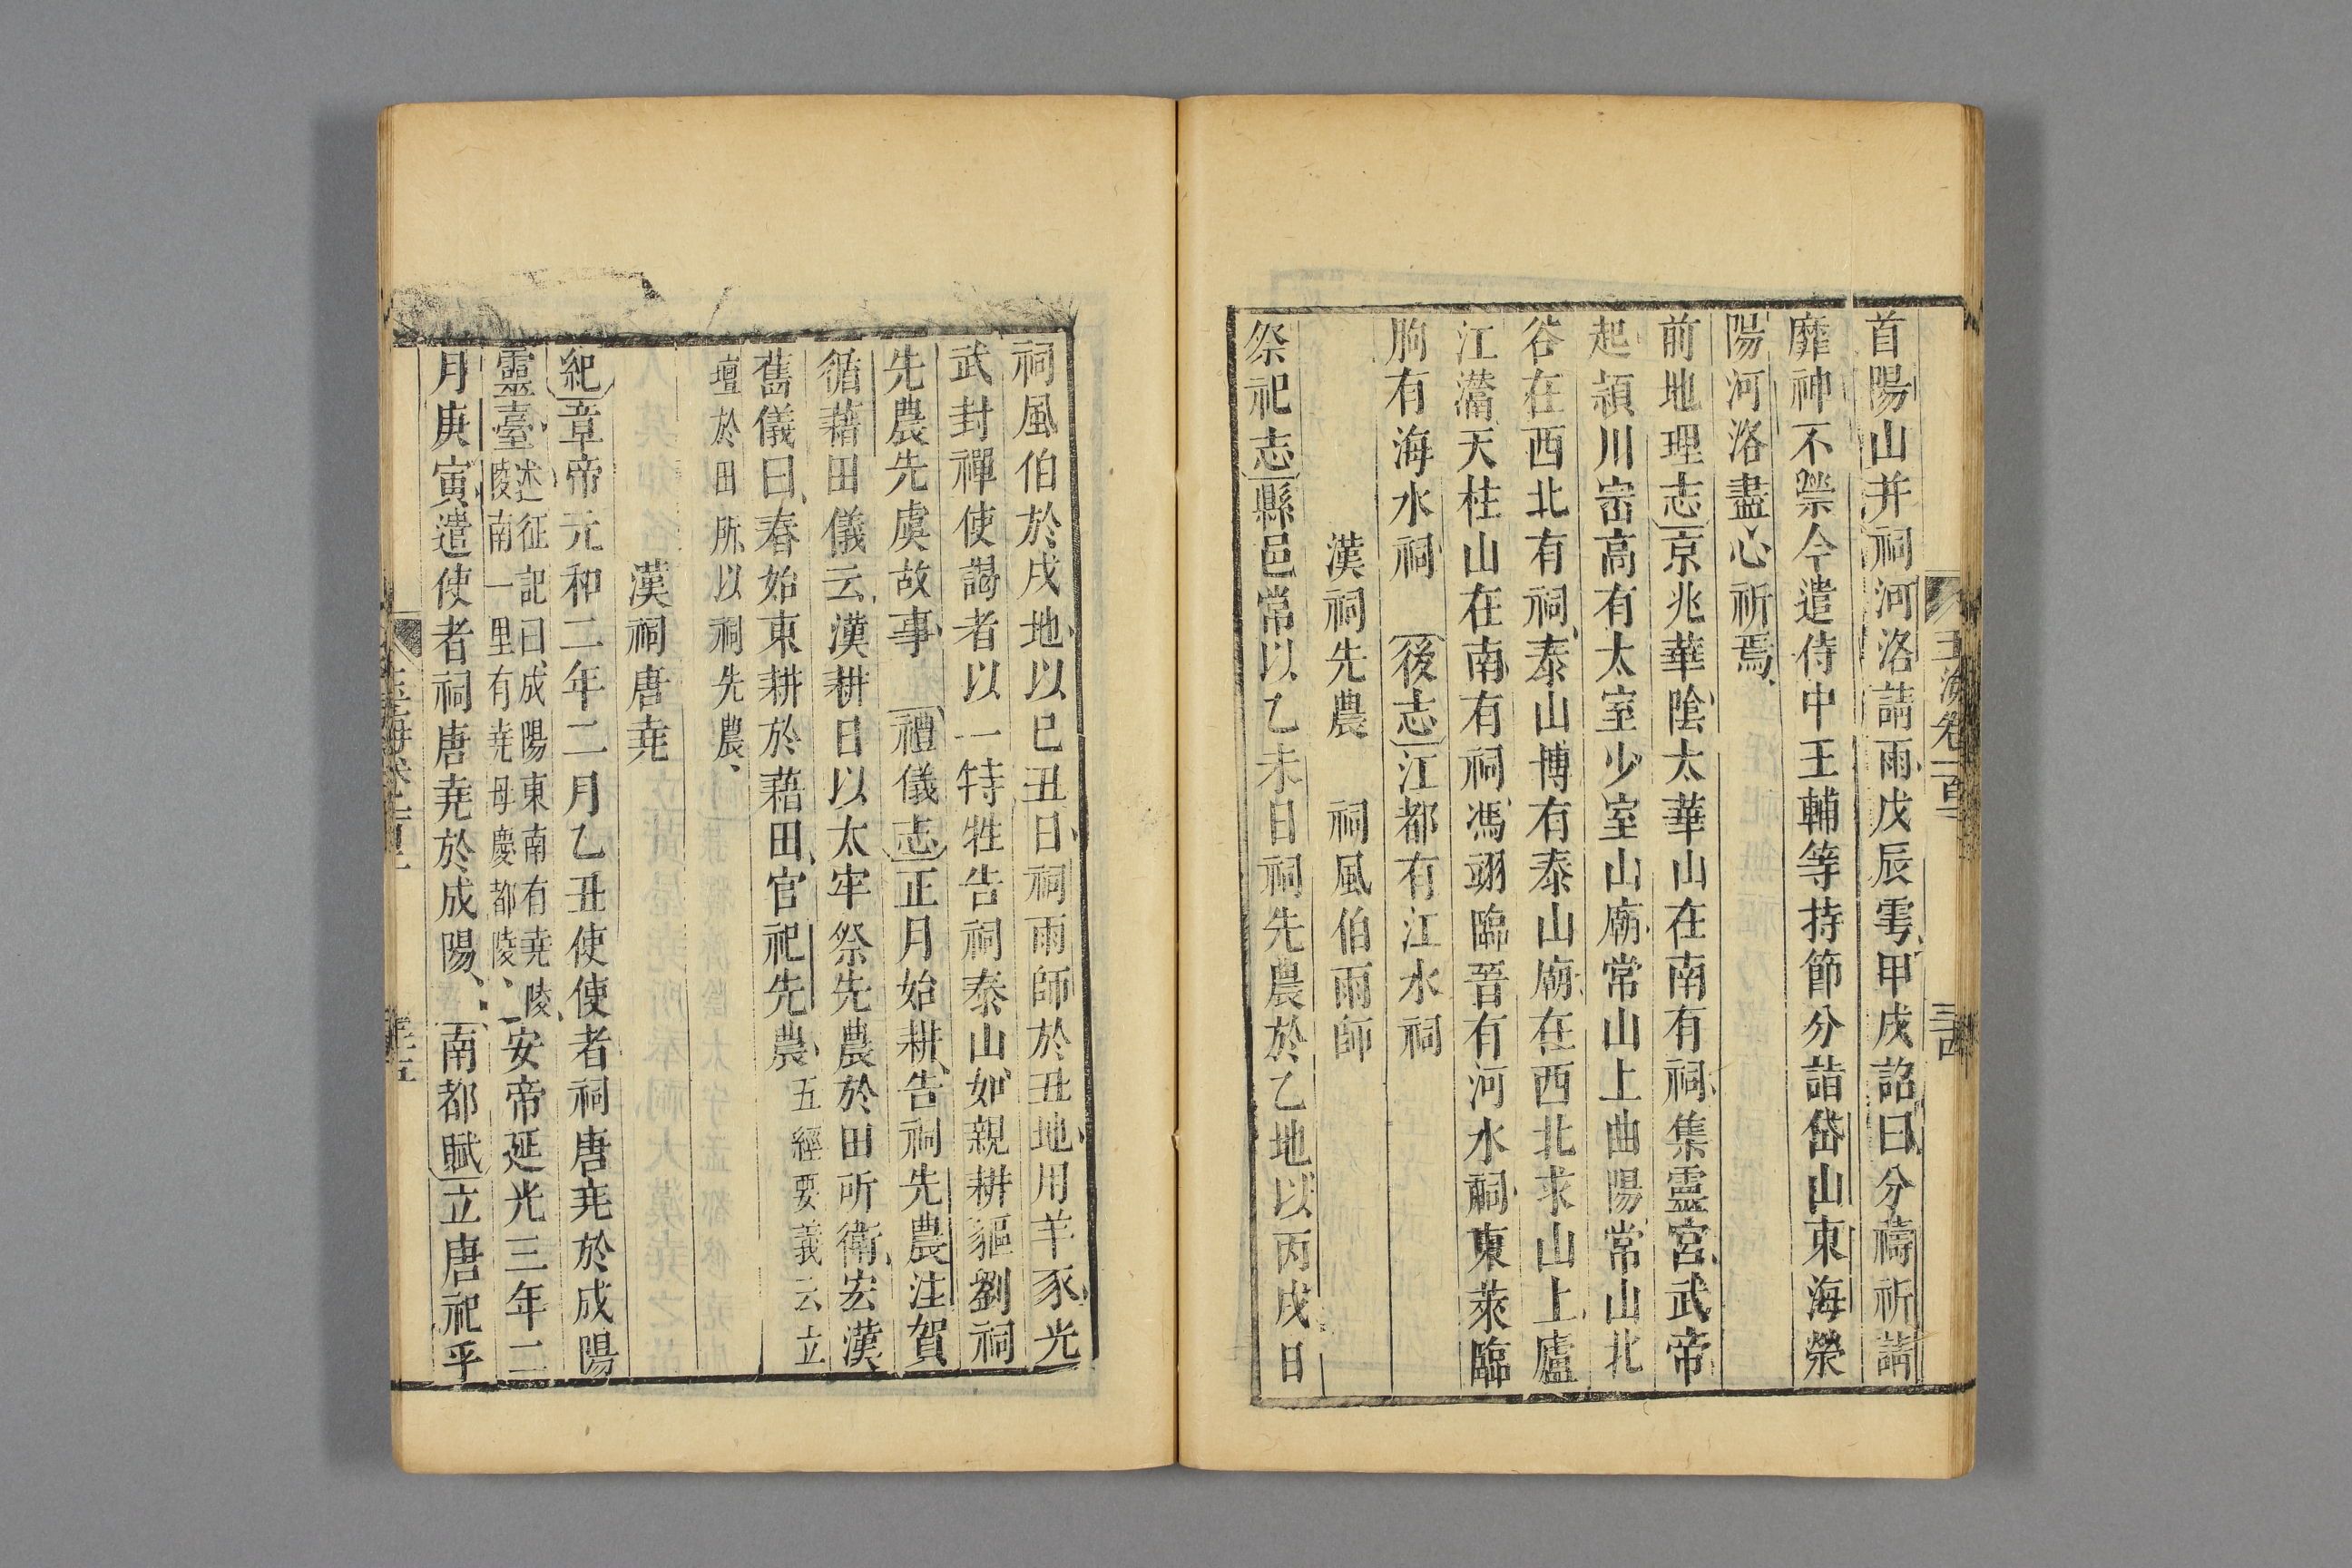 首陽山并祠河洛請雨戊辰雩甲戌詔曰分禱祈請
靡神不禜今遣侍中王輔等持節分詣岱山東海滎
陽河洛盡心祈焉
前地理志京兆華陰太華山在南有祠集靈宮武帝
起潁川崈高有太室少室山廟常山上曲陽常山北
谷在西北有祠泰山博有泰山廟在西北求山上廬
江灊天柱山在南有祠馮翊臨晉有河水祠東萊臨
朐有海水祠　後志江都有江水祠
漢祠先農　祠風伯雨師
祭祀志縣邑常以乙未日祠先農於乙地以丙戌日
祠風伯於戌地以巳丑日祠雨師於丑地用羊豕光
武封禪使謁者以一特牲告祠泰山如親耕貙劉祠
先農先虞故事　禮儀志正月始耕告祠先農注賀
循藉田儀云漢耕日以太牢祭先農於田所衛宏漢
舊儀曰春始東耕於藉田官祀先農五經要義云立
壇於田所以祠先農
漢祠唐堯
紀章帝元和二年二月乙丑使使者祠唐堯於成陽
靈臺述征記曰成陽東南有堯陵陵南一里有堯母慶都陵安帝延光三年二
月庚寅遣使者祠唐堯於成陽　南都賦立唐祀乎